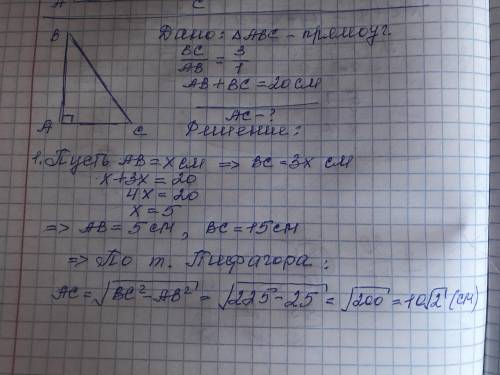 A C
B Дано: △ABC - прямоуг.
BC/AB = 3/1
AB + BC = 20 см
AC - ?
A C Решение:
1. Пусть AB = x см => BC = 3x см
x + 3x = 20
4x = 20
x = 5
=> AB = 5 см, BC = 15 см
=> По т. Пифагора:
AC = √BC² - AB² = √225 - 25 = √200 = 10√2 (см)